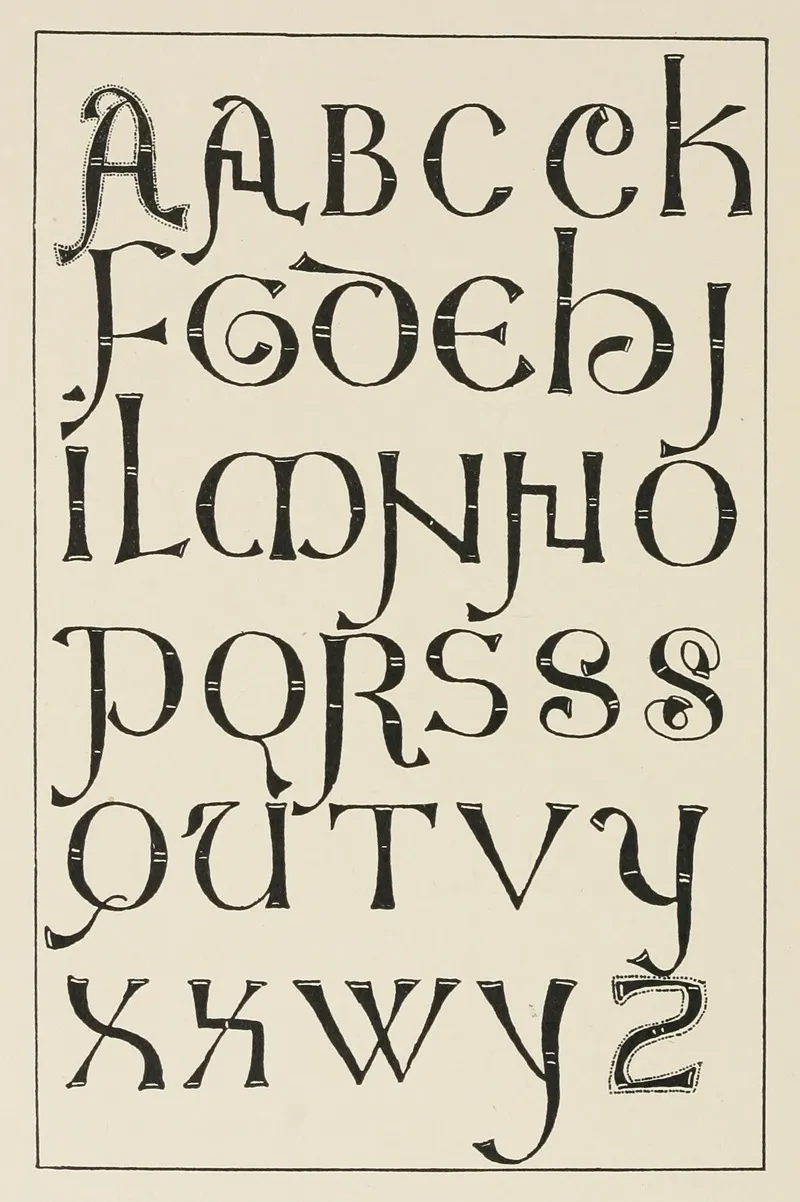 A A B C C k
F G D E h J
i L M N N O
P Q R S S S
Q U T V y
X X W y Z